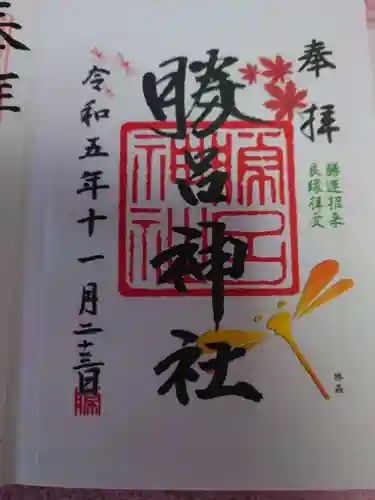 奉拝
勝運招来
良縁拝受
勝呂神社
勝呂
神社
令和五年十一月二十三日